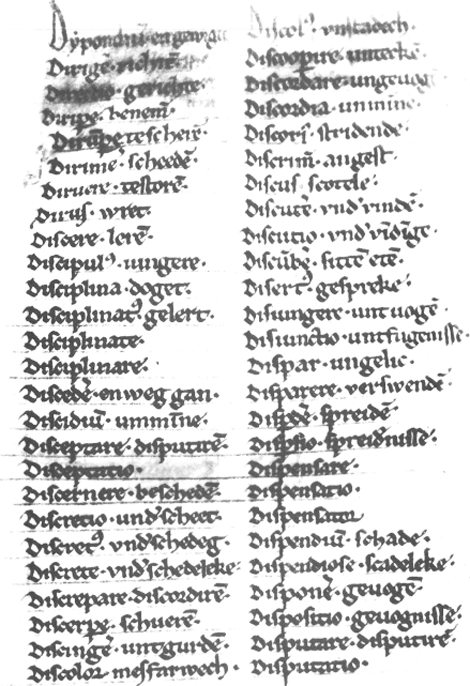 Dirigē· richtē·
Directio· gerichte·
Diripe· benem̄·
Dirūpe tescherē·
Dirime· scheedē·
Diruere· testorē·
Dirus· wret·
Discere· lerē·
Discipulꝰ· iungere·
Disciplina· doget·
Disciplinatꝰ gelert·
Disciplinate·
Disciplinare·
Discedē· enweg gan·
Discidiū· umminne·
Disceptare· disputirē·
Disceptatio·
Discernere· beschedē·
Discretio· und'scheet·
Discretꝰ· vnd'schedeg·
Discrete· vnd'schedeleke·
Discrepare· discordirē·
Discerpe· schuerē·
Discingē· untgurdē·
Discolor· mesfarwech·
Discolꝰ· vnstadech·
Discoopire· unteckē·
Discordare· ungeuog
Discordia· ummīne·
Discors· stridende·
Discrim̄· angest·
Discus· scotele·
Discutē· vnd'vindē·
Discutio· vnd'vīdīge·
Discūbē· sittē etē·
Disert'· gespreke·
Disiungere· unt uogē·
Disiunctio· untfugenisse·
Dispar· ungelic·
Disparere· verswendē·
Dispendē· spreidē·
Dispersio· spreidnisse·
Dispensare·
Dispensatio·
Dispensator
Dispendiū· schade·
Dispendiose· scadeleke·
Disponē· geuogē·
Dispositio· geuognisse·
Disputare· disputirē·
Disputatio·